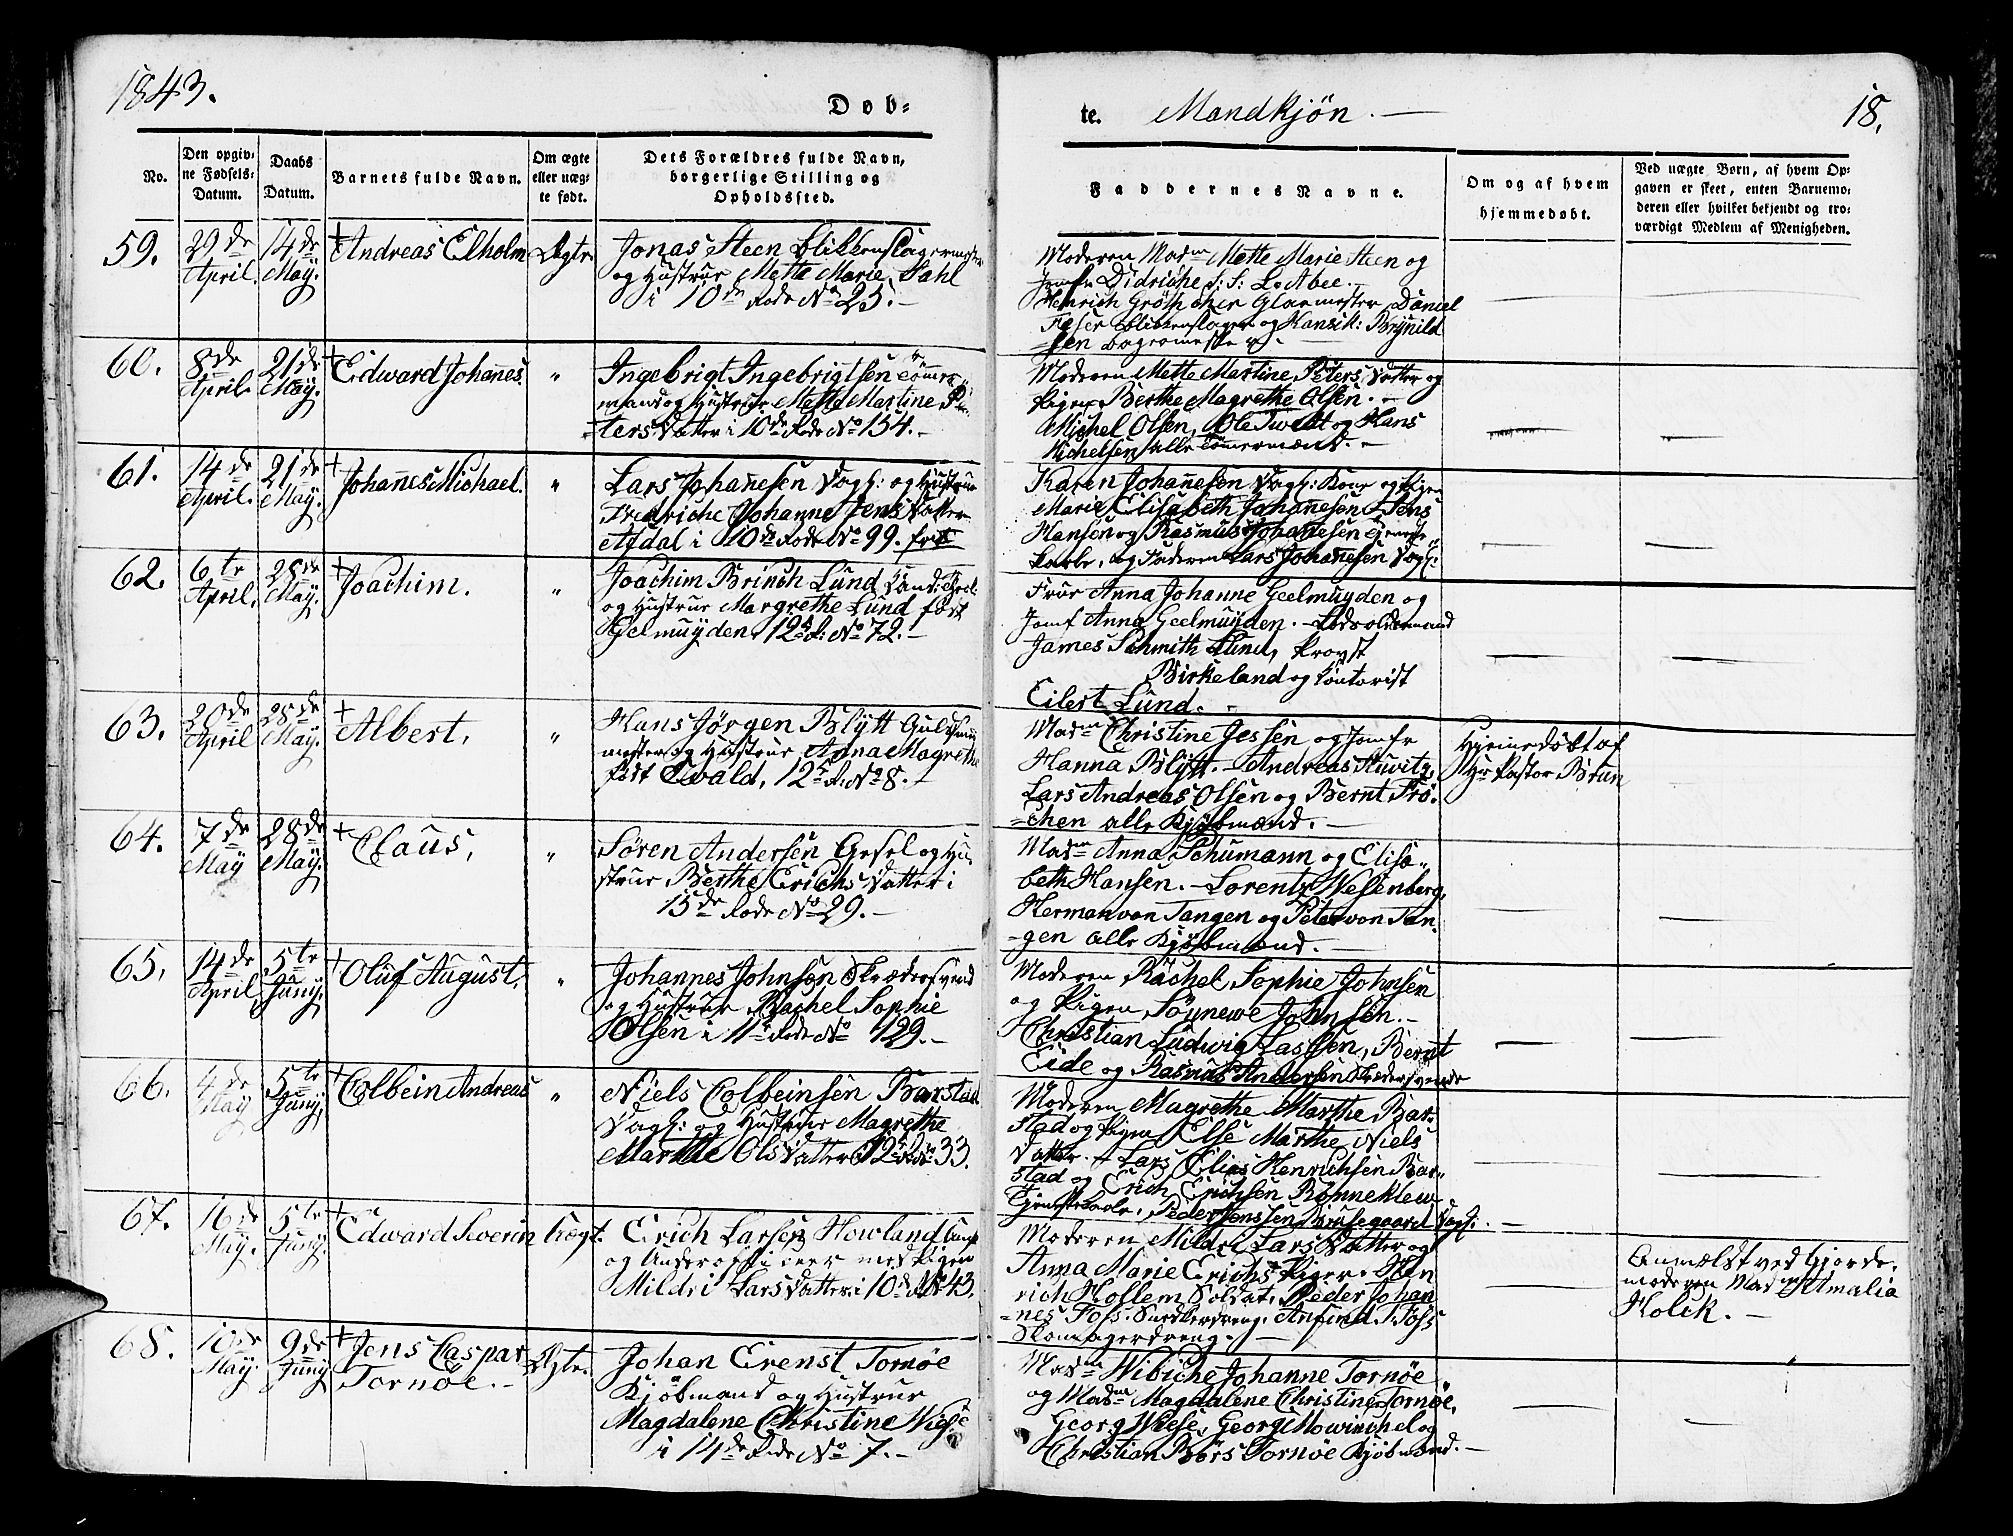 1843.
Døb-
te. Mandkjön. —
18.
No.
Den opgiv-
ne Fødsels-
Datum.
Daabs
Datum.
Barnets fulde Navn.
Om ægte
eller uæg-
te født.
Dets Forældres fulde Navn,
borgerlige Stilling og
Opholdssted.
Faddernes Navne.
Om og af hvem
hjemmedøbt.
Ved uægte Børn, af hvem Op-
gaven er skeet, enten Barnemo-
deren eller hvilket bekjendt og tro-
værdigt Medlem af Menigheden.
59.
29de
April.
14de
May.
Andreas Elholm
Ægte.
Jonas Steen Blikkenslagermester
og Hustrue Mette Marie Dahl
i 10de Rode No 25. —
Moderen Madm Mette Marie Steen og
Jomfr Didriche L. Abee.
Henrich Glarmester, Daniel
Blikkenslager og Brynild
-sen Bagermester.
60.
8de
April.
21de
May.
Edward Johanes.
"
Ingebrigt Ingebrigtsen Tömmer
mand og Hustrue Mette Martine Pe-
ters Datter i 10de Rode No 154. —
Moderen Mette Martine Peters Datter og
Pigen Berthe Magrethe Olsen. —
Michel Olsen, Ole Tweit og Hans
Michelsen alle Tömermænd. —
61.
14de
April.
21de
May.
Johanes Michael.
"
Lars Johanesen Dagl: og Hustrue
Fredriche Johanne Jens Datter
i 10de Rode No 99.
Karen Johanesen Dagl: Kone og Pigen
Marie Elisabeth Johanesen. Jens
Hansen og Rasmus Johanesen Tjeneste-
karle, og Faderen Lars Johanesen Dagl:
62.
6te
April.
28de
May.
Joachim.
"
Joachim Brinch Lund
og Hustrue Margrethe Lund født
Gelmuyden, 12te R: No 72. —
Frue Anna Johanne Geelmuyden og
Jomf Anna Geelmuyden. — Lodsoldermand
James Schmith Lund, Provst
Birkeland og Contorist
Eilert Lund. —
63.
20de
April
28de
May.
Albert,
"
Hans Jörgen Blytt Guldsmed
mester og Hustrue Anna Magrethe
født Ewald, 12te R. No 8. —
Madm Christine Jessen og Jomfr
Hanna Blytt. — Andreas
Lars Andreas Olsen og Bernt Frö-
-chen alle Kjöbmænd. —
Hjemedöbt af
Hr Pastor Brun
64.
7de
May
28de
May.
Claus,
"
Søren Andersen Gesel og Hu-
strue Berthe Erichs Datter i
15de Rode No 29. —
Madm Anna Schumann og Elisa-
beth Hansen. — Lorentz Wesenberg,
Herman von Tangen og Peter von Tan-
-gen alle Kjöbmænd. —
65.
14de
April
5te
Juny.
Oluf August,
"
Johannes Johnsen Skrædersvend
og Hustrue Rachel Sophie
Olsen i 11te Rode No 129. —
Moderen Rachel Sophie Johnsen
og Pigen Sönnewe Johnsen. —
Christian Ludwig Lassen, Bernt
Eide og Rasmus Andersen Skrædersvende
66.
4de
May
5te
Juny,
Colbein Andreas
"
Niels Colbeinsen Barstad
Dagl: og Hustrue Magrethe
Marthe Ols Datter i 12te Rode No 33.
Moderen Magrethe Marthe Bar-
stad og Pigen Else Marthe Niels
Datter. — Lars Elias Henrichsen Bar-
stad og Erich Erichsen Rönneklew
Tjenestekarle, Peder Jenssen Dagl:
67.
16de
May.
5te
Juny.
Edward Severin
Uægt.
Erich Larsen Howland
og med Pigen
Mildri Lars Datter i 10de R No 43.
Moderen Mildri Lars Datter og
Anna Marie Erichs Piger. Hen
rich Hollem Soldat, Peder Johan
-nes Foss Snedkerdreng, Anfind J. Foss
Skomagerdreng. —
Anmeldt ved Gjorde-
moderen Madm Amalia
Holck. —
68.
10de
May.
9de
Juny
Jens Caspar
Tornöe. —
Ægte.
Johan Ernst Tornöe
Kjöbmand og Hustrue
Magdalene Christine Wiese
i 14de Rode No 7. —
Madm Wibiche Johanne Tornöe
og Madm Magdalene Christine Tornöe,
Georg Wiese, Georg Mowinchel og
Christian Börs Tornöe Kjöbmænd. —